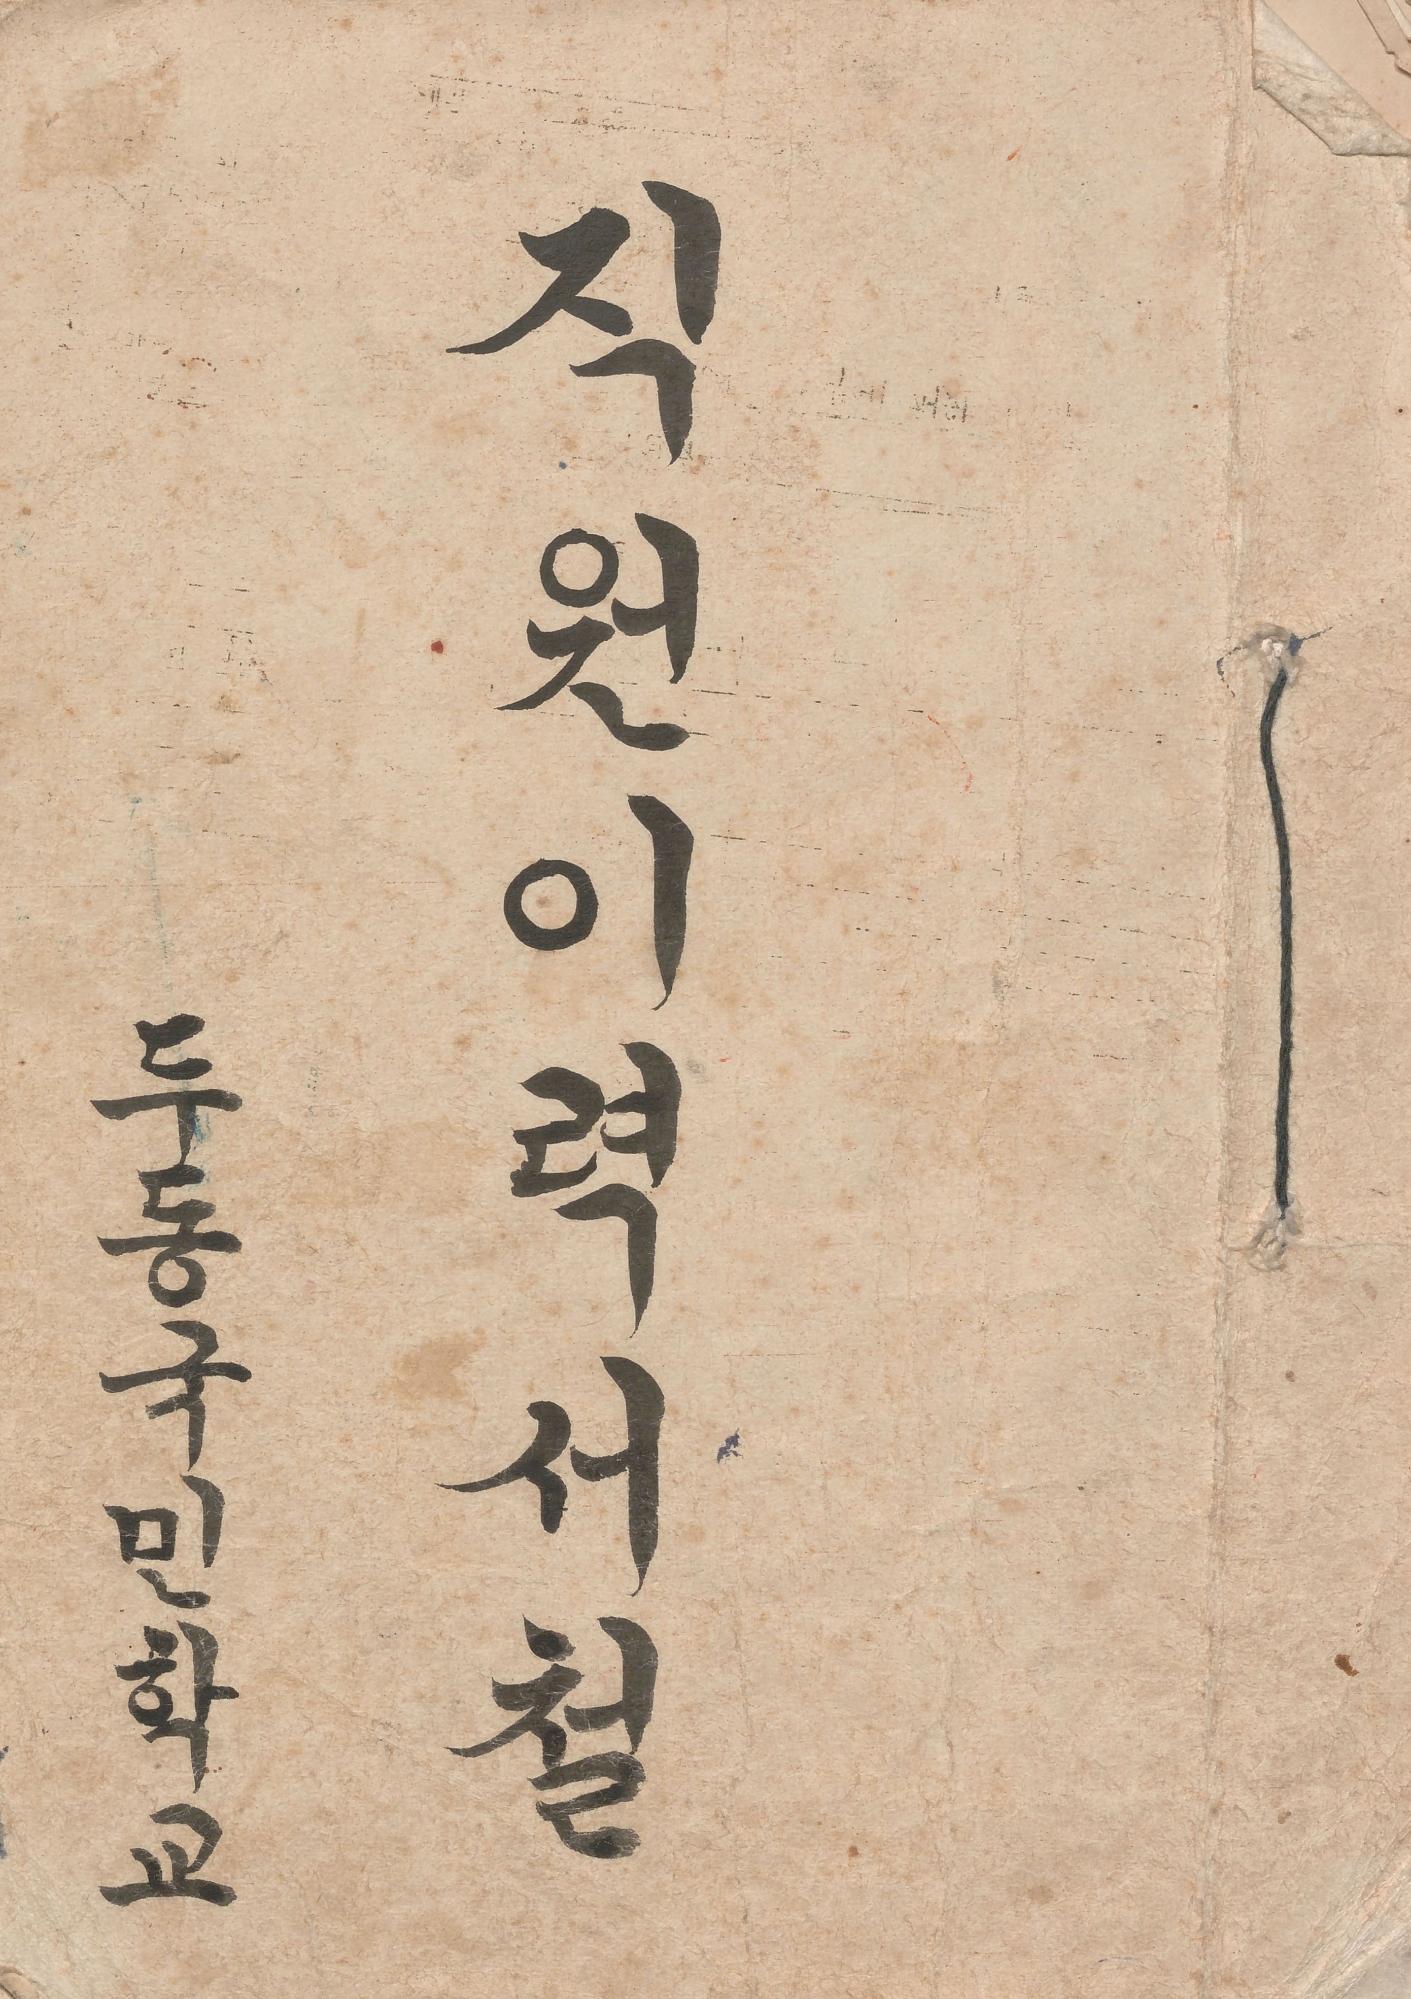 직원이력서철
두동국민학교